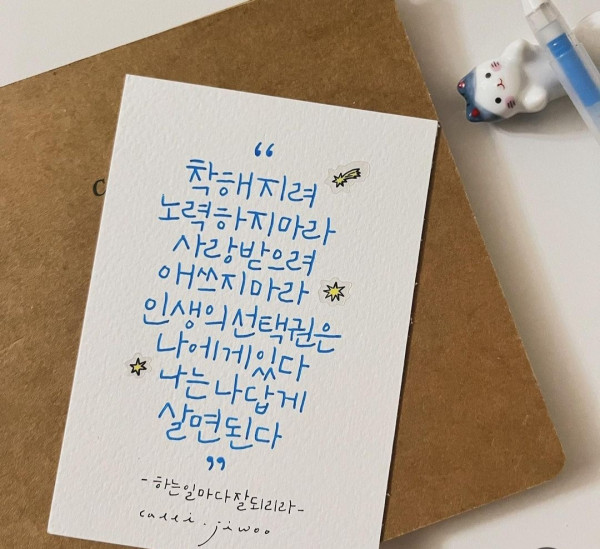 “
착해지려
노력하지마라
사랑받으려
애쓰지마라
인생의선택권은
나에게있다
나는나답게
살면된다
”
-하는일마다잘되리라-
calli.jiwoo